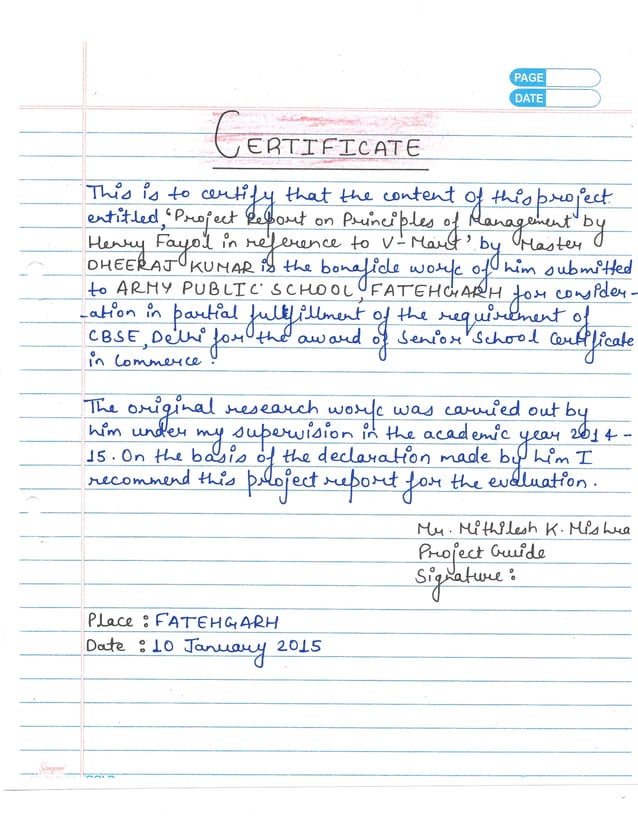 PAGE
DATE
CERTIFICATE
This is to certify that the content of this project
entitled, 'Project Report on Principles of Management by
Henry Fayol in reference to V-Mart' by Master
DHEERAJ KUMAR is the bonafide work of him submitted
to ARMY PUBLIC SCHOOL, FATEHGARH for consider-
-ation in partial fullfillment of the requirement of
CBSE, Delhi for the award of Senior School Certificate
in Commerce.
The original research work was carried out by
him under my supervision in the academic year 2014-
15. On the basis of the declaration made by him I
recommend this project report for the evaluation.
Mr. Mithilesh K. Mishra
Project Guide
Signature:
Place: FATEHGARH
Date: 10 January 2015
Sangam